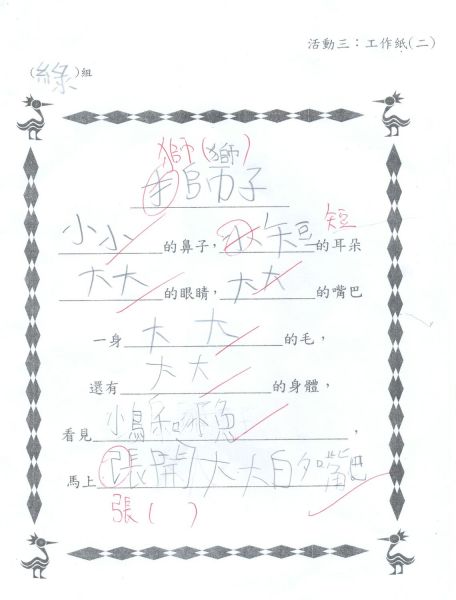 活動三：工作紙(二)
(綠)組
獅(獅)
獅子
短
小小的鼻子，小短的耳朵
大大的眼睛，大大的嘴巴
一身大大的毛，
還有大大的身體，
看見小鳥和小魚，
馬上張開大大白勺嘴巴
張( )